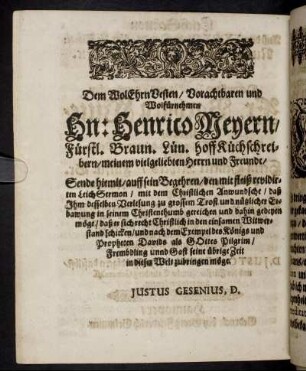 Dem WolEhrnVesten / Vorachtbaren und
Wolfürnehmen
Hn: Henrico Meyern /
Fürstl. Braun. Lün. Hoff Küchschrei-
bern / meinem vielgeliebten Herrn und Freunde /
Sende hiemit / auff sein Begehren / den mit fleiß revidir-
ten Leich Sermon / mit dem Christlichen Anwundsche / daß
Ihm desselben Verlesung zu grossem Trost und nüglicher Er-
bawung in seinem Christenthumb gereichen und dahin gedeyen
möge / daß er sich recht Christlich in den einsamen Witwer-
stand schicken / und nach dem Exempel des Königs und
Propheten Davids als GOttes Pilgrim /
Frembdling unnd Gast seine übrige Zeit
in dieser Welt zubringen möge.
JUSTUS GESENIUS, D.